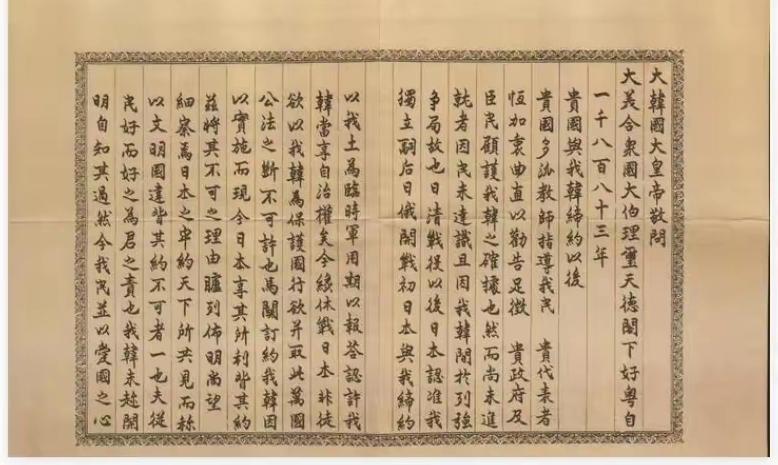 大韓國大皇帝敬問
大美合衆國大伯理璽天德閣下好粤自
一千八百八十三年
貴國與我韓締約以後
貴國多派教師指導我民 貴代表者
恆加衷曲直以勸告足徵 貴政府及
臣民顧護我韓之確據也然而尚未進
就者因民未達識且因我韓閒於列強
争局故也日清戰役以後日本認准我
獨立嗣后日俄開戰初日本與我締約
以我土為臨時軍用期以報答認許我
韓當享自治權矣今纔休戰日本非徒
欲以我韓為保護國行欲并取此萬國
公法之斷不可許也馬關訂約我韓因
以實施而現今日本享其所利背其約
茲將其不可之理由臚列佈明尚望
細察焉日本之牢約天下所共見而称
以文明國違背其約不可者一也夫從
民好而好之為君之責也我韓未趂開
明自知其過然今我民並以愛國之心